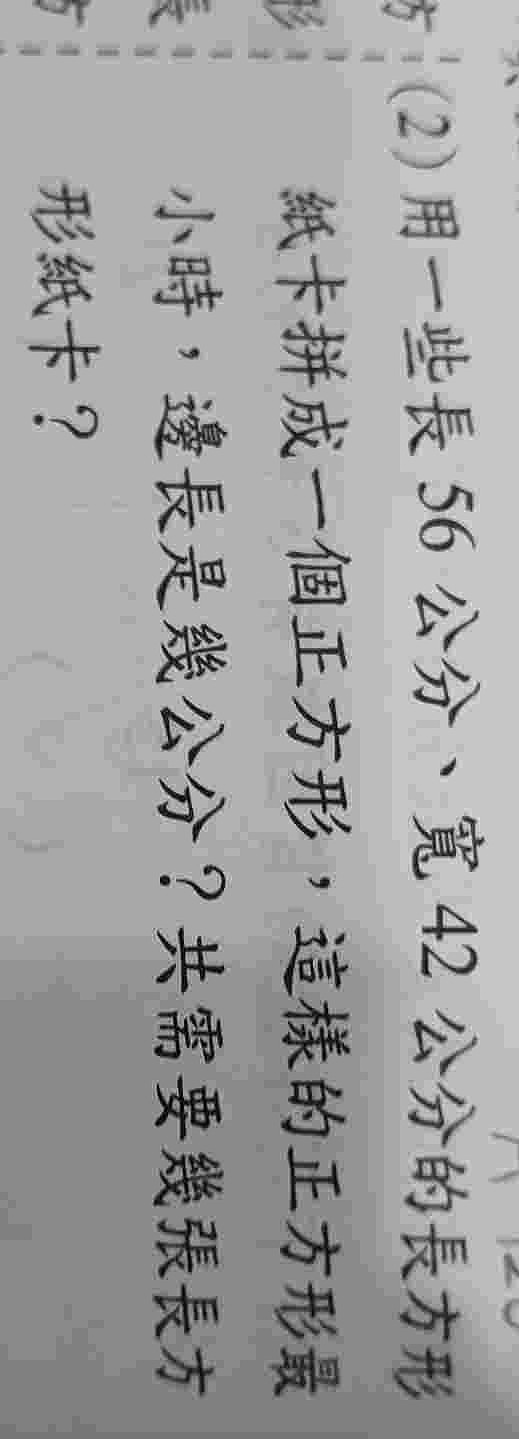 (2) 用一些長 56 公分、寬 42 公分的長方形
紙卡拼成一個正方形，這樣的正方形最
小時，邊長是幾公分？共需要幾張長方
形紙卡？